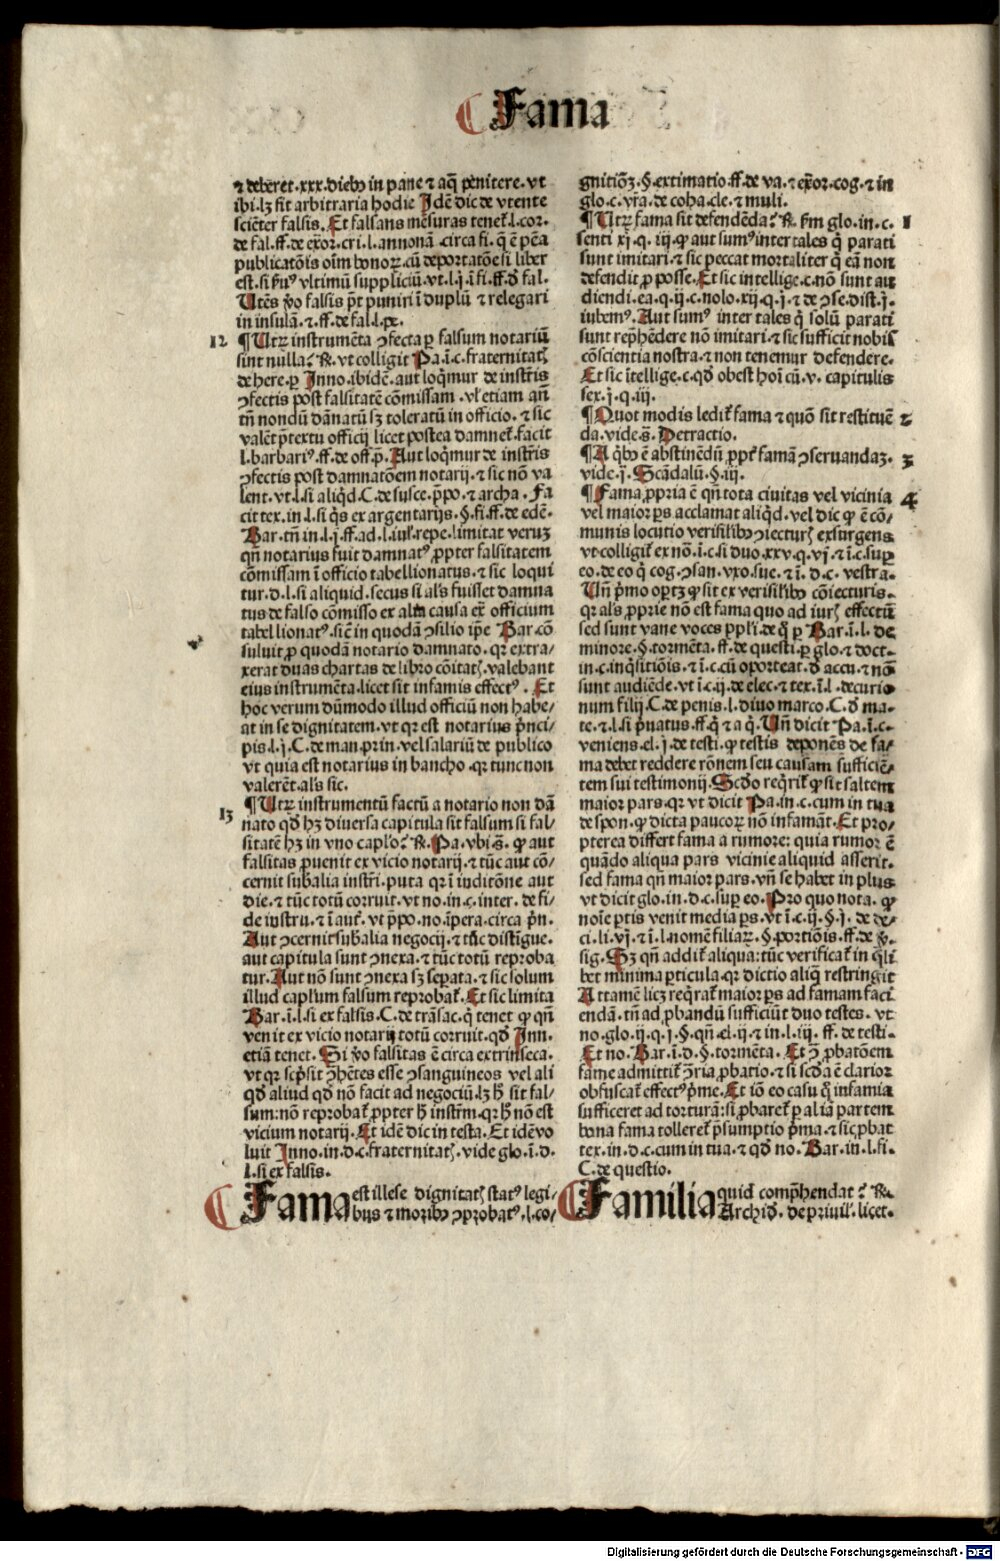 Fama
⁊ deberet .xxx. dieb⁹ in pane ⁊ aq̄ penitere. vt
ibi. lꝫ sit arbitraria hodie Idē dic de vtente
sciēter falsis. Et falsans mēsuras tenet᷑. l. cor.
de fal. ff. de exor. cri. l. annonā. circa fi. q̄ ē pēa
publicatōis oīm bonoꝝ. cū deportatōe si liber
est. si ẜu⁹ vltimū suppliciū. vt. l. j. ī fi. ff. ď fal.
Utēs ꝟo falsis pt̄ puniri ī duplū ⁊ relegari
in insulā. ⁊. ff. de fal. l. pe.
12 ¶ Utꝝ instrumēta ꝯfecta ꝑ falsum notariū
sint nulla? ℞. vt colligit Pa. ī. c. fraternitatꝭ
de here. ꝑ Inno. ibidē. aut loq̄mur de instr̄is
ꝯfectis post falsitatē cōmissam. vl' etiam an̄
tn̄ nondū dānatū sꝫ toleratū in officio. ⁊ sic
valēt p̄textu officij licet postea damnet᷑. facit
l. barbari⁹. ff. de off. p̄. Aut loq̄mur de instr̄is
ꝯfectis post damnatōem notarij. ⁊ sic nō va
lent. vt. l. si aliq̇d. C. de susce. p̄po. ⁊ archa. Fa
cit tex. in. l. si q̇s ex argentarijs. §. fi. ff. de edē.
Bar. tn̄ in. l. j. ff. ad. l. iul'. repe. limitat veruꝫ
qn̄ notarius fuit damnat⁹ ꝓpter falsitatem
cōmissam ī officio tabellionatus. ⁊ sic loqui
tur. d. l. si aliquid. secus si al's fuisset damna
tus de falso cōmisso ex alia causa ex̄ officium
tabellionat⁹. sic̄ in quodā ꝯsilio ip̄e Bar. cō
suluit ꝓ quodā notario damnato. qꝛ extra/
xerat duas chartas de libro cōitatꝭ. valebant
eius instrumēta. licet sit infamis effect⁹. Et
hoc verum dūmodo illud officiū non habe/
at in se dignitatem. vt qꝛ est notarius p̄nci/
pis. l. j. C. de man. prin. vel salariū de publico
vt quia est notarius in bancho. qꝛ tunc non
valerēt. al's sic.
13 ¶ Utꝝ instrumentū factū a notario non dā
nato qď hꝫ diuersa capitula sit falsum si fal/
sitatē hꝫ in vno cap̄lo? ℞. Pa. vbi. s̄. ꝙ aut
falsitas ꝓuenit ex vicio notarij. ⁊ tūc aut cō/
cernit sub̄alia instr̄i. puta qꝛ ī inditōne aut
die. ⁊ tūc totū corruit. vt no. in. c. inter. de fi/
de instru. ⁊ ī aut᷑. vt p̄po. no. īpera. circa p̄n.
Aut ꝯcernit sub̄alia negocij. ⁊ tūc distīgue.
aut capitula sunt ꝯnexa. ⁊ tūc totū reproba
tur. Aut nō sunt ꝯnexa sꝫ seꝑata. ⁊ sic solum
illud cap̄lum falsum reprobat᷑. Et sic limita
Bar. ī. l. si ex falsis. C. de trāsac. q̄ tenet ꝙ qn̄
venit ex vicio notarij totū corruit. qď Inn.
etiā tenet. Si ꝟo falsitas ē circa extrinseca.
vt qꝛ scp̄sit ꝯhētes esse ꝯsanguineos vel ali
qď aliud qď nō facit ad negociū. lꝫ ħ sit fal/
sum: nō reprobat᷑ ꝓpter ħ instr̄m. qꝛ ħ nō est
vicium notarij. Et idē dic in testa. Et idē vo
luit Inno. in. d. c. fraternitatꝭ. vide glo. ī. d.
l. si ex falsis.
Fama est illese dignitatꝭ stat⁹ legi/
bus ⁊ morib⁹ ꝯprobat⁹. l. co/
gnitiōꝫ. §. extimatio. ff. de va. ⁊ ex̄or. cog. ⁊ in
glo. c. vr̄a. de coha. cle. ⁊ muli.
¶ Utꝝ fama sit defendēda? ℞. ẜm glo. in. c. 1
senti xj. q. iij. ꝙ aut sum⁹ inter tales q̇ parati
sunt imitari. ⁊ sic peccat mortaliter q̇ eā non
defendit ꝓ posse. Et sic intellige. c. nō sunt au
diendi. ea. q. ij. c. nolo. xij. q. j. ⁊ de ꝯse. dist. j.
iubem⁹. Aut sum⁹ inter tales q̇ solū parati
sunt rep̄hēdere nō imitari. ⁊ sic sufficit nobis
cōscientia nostra. ⁊ non tenemur defendere.
Et sic ītellige. c. qď obest hoī cū. v. capitulis
seq. j. q. iij.
¶ Quot modis ledit᷑ fama ⁊ quō sit restituē 2
da. vide. s̄. Detractio.
¶ A q̇b⁹ ē abstinēdū ꝓpt᷑ famā ꝯseruandaꝫ. 3
vide. j̄. Scādalū. §. iij.
¶ Fama ꝓpria ē qn̄ tota ciuitas vel vicinia 4
vel maior ꝑs acclamat aliq̇d. vel dic ꝙ ē cō/
munis locutio verisilib⁹ ꝯiecturꝭ exsurgens
vt colligit᷑ ex nō. ī. c. si duo. xxv. q. vj. ⁊ ī. c. suꝑ
eo. de eo q̇ cog. ꝯsan. vxo. sue. ⁊ ī. d. c. vestra.
Un̄ p̄mo oꝑtꝫ ꝙ sit ex verisilib⁹ cōiecturis.
qꝛ al's ꝓprie nō est fama quo ad iurꝭ effectū
sed sunt vane voces pp̄li. de q̇ ꝑ Bar. ī. l. de
minore. §. tormēta. ff. de questi. ꝑ glo. ⁊ doct.
in. c. inq̇sitiōis. ⁊ ī. c. cū oporteat. ď accu. ⁊ nō
sunt audiēde. vt ī. c. ij. de elec. ⁊ tex. ī. l. decurio
num filij. C. de penis. l. diuo marco. C. ď ma/
te. ⁊. l. si p̄uatus. ff. q̇ ⁊ a q̇. Un̄ dicit Pa. ī. c.
veniens. el. j. de testi. ꝙ testis deponēs de fa/
ma debet reddere rōnem seu causam sufficiē/
tem sui testimonij. Scďo req̇rit᷑ ꝙ sit saltem
maior pars. qꝛ vt dicit Pa. in. c. cum in tua
de spon. ꝙ dicta paucoꝝ nō infamāt. Et pro/
pterea differt fama a rumore: quia rumor ē
quādo aliqua pars vicinie aliquid asserit.
sed fama qn̄ maior pars. vn̄ se habet in plus
vt dicit glo. in. d. c. suꝑ eo. Pro quo nota. ꝙ
noīe ꝑtis venit media ꝑs. vt ī. c. ij. §. j. de de/
ci. li. vj. ⁊ ī. l. nomē filiaꝝ. §. portiōis. ff. de ꝟ.
sig. Sꝫ qn̄ addit᷑ aliqua: tūc verificat᷑ in q̄li
bet minima ꝑticula. qꝛ dictio aliq̄ restringit
Attamē licꝫ req̇rat᷑ maior ꝑs ad famam faci
endā. tn̄ ad ꝓbandū sufficiūt duo testes. vt
no. glo. ij. q. j. §. qn̄. el. ij. ⁊ in. l. iij. ff. de testi.
Et no. Bar. ī. d. §. tormēta. Et ꝯ̄ ꝓbatōem
fame admittit᷑ ꝯ̄ria ꝓbatio. ⁊ si scďa ē clarior
obfuscat᷑ effect⁹ p̄me. Et iō eo casu q̇ infamia
sufficeret ad torturā: si ꝓbaret᷑ ꝑ aliā partem
bona fama tolleret᷑ p̄sumptio p̄ma. ⁊ sic ꝓbat
tex. in. d. c. cum in tua. ⁊ qď no. Bar. in. l. fi.
C. de questio.
Familia quid comp̄hendat? ℞.
Archiď. de priuil'. licet.
Digitalisierung gefördert durch die Deutsche Forschungsgemeinschaft - DFG